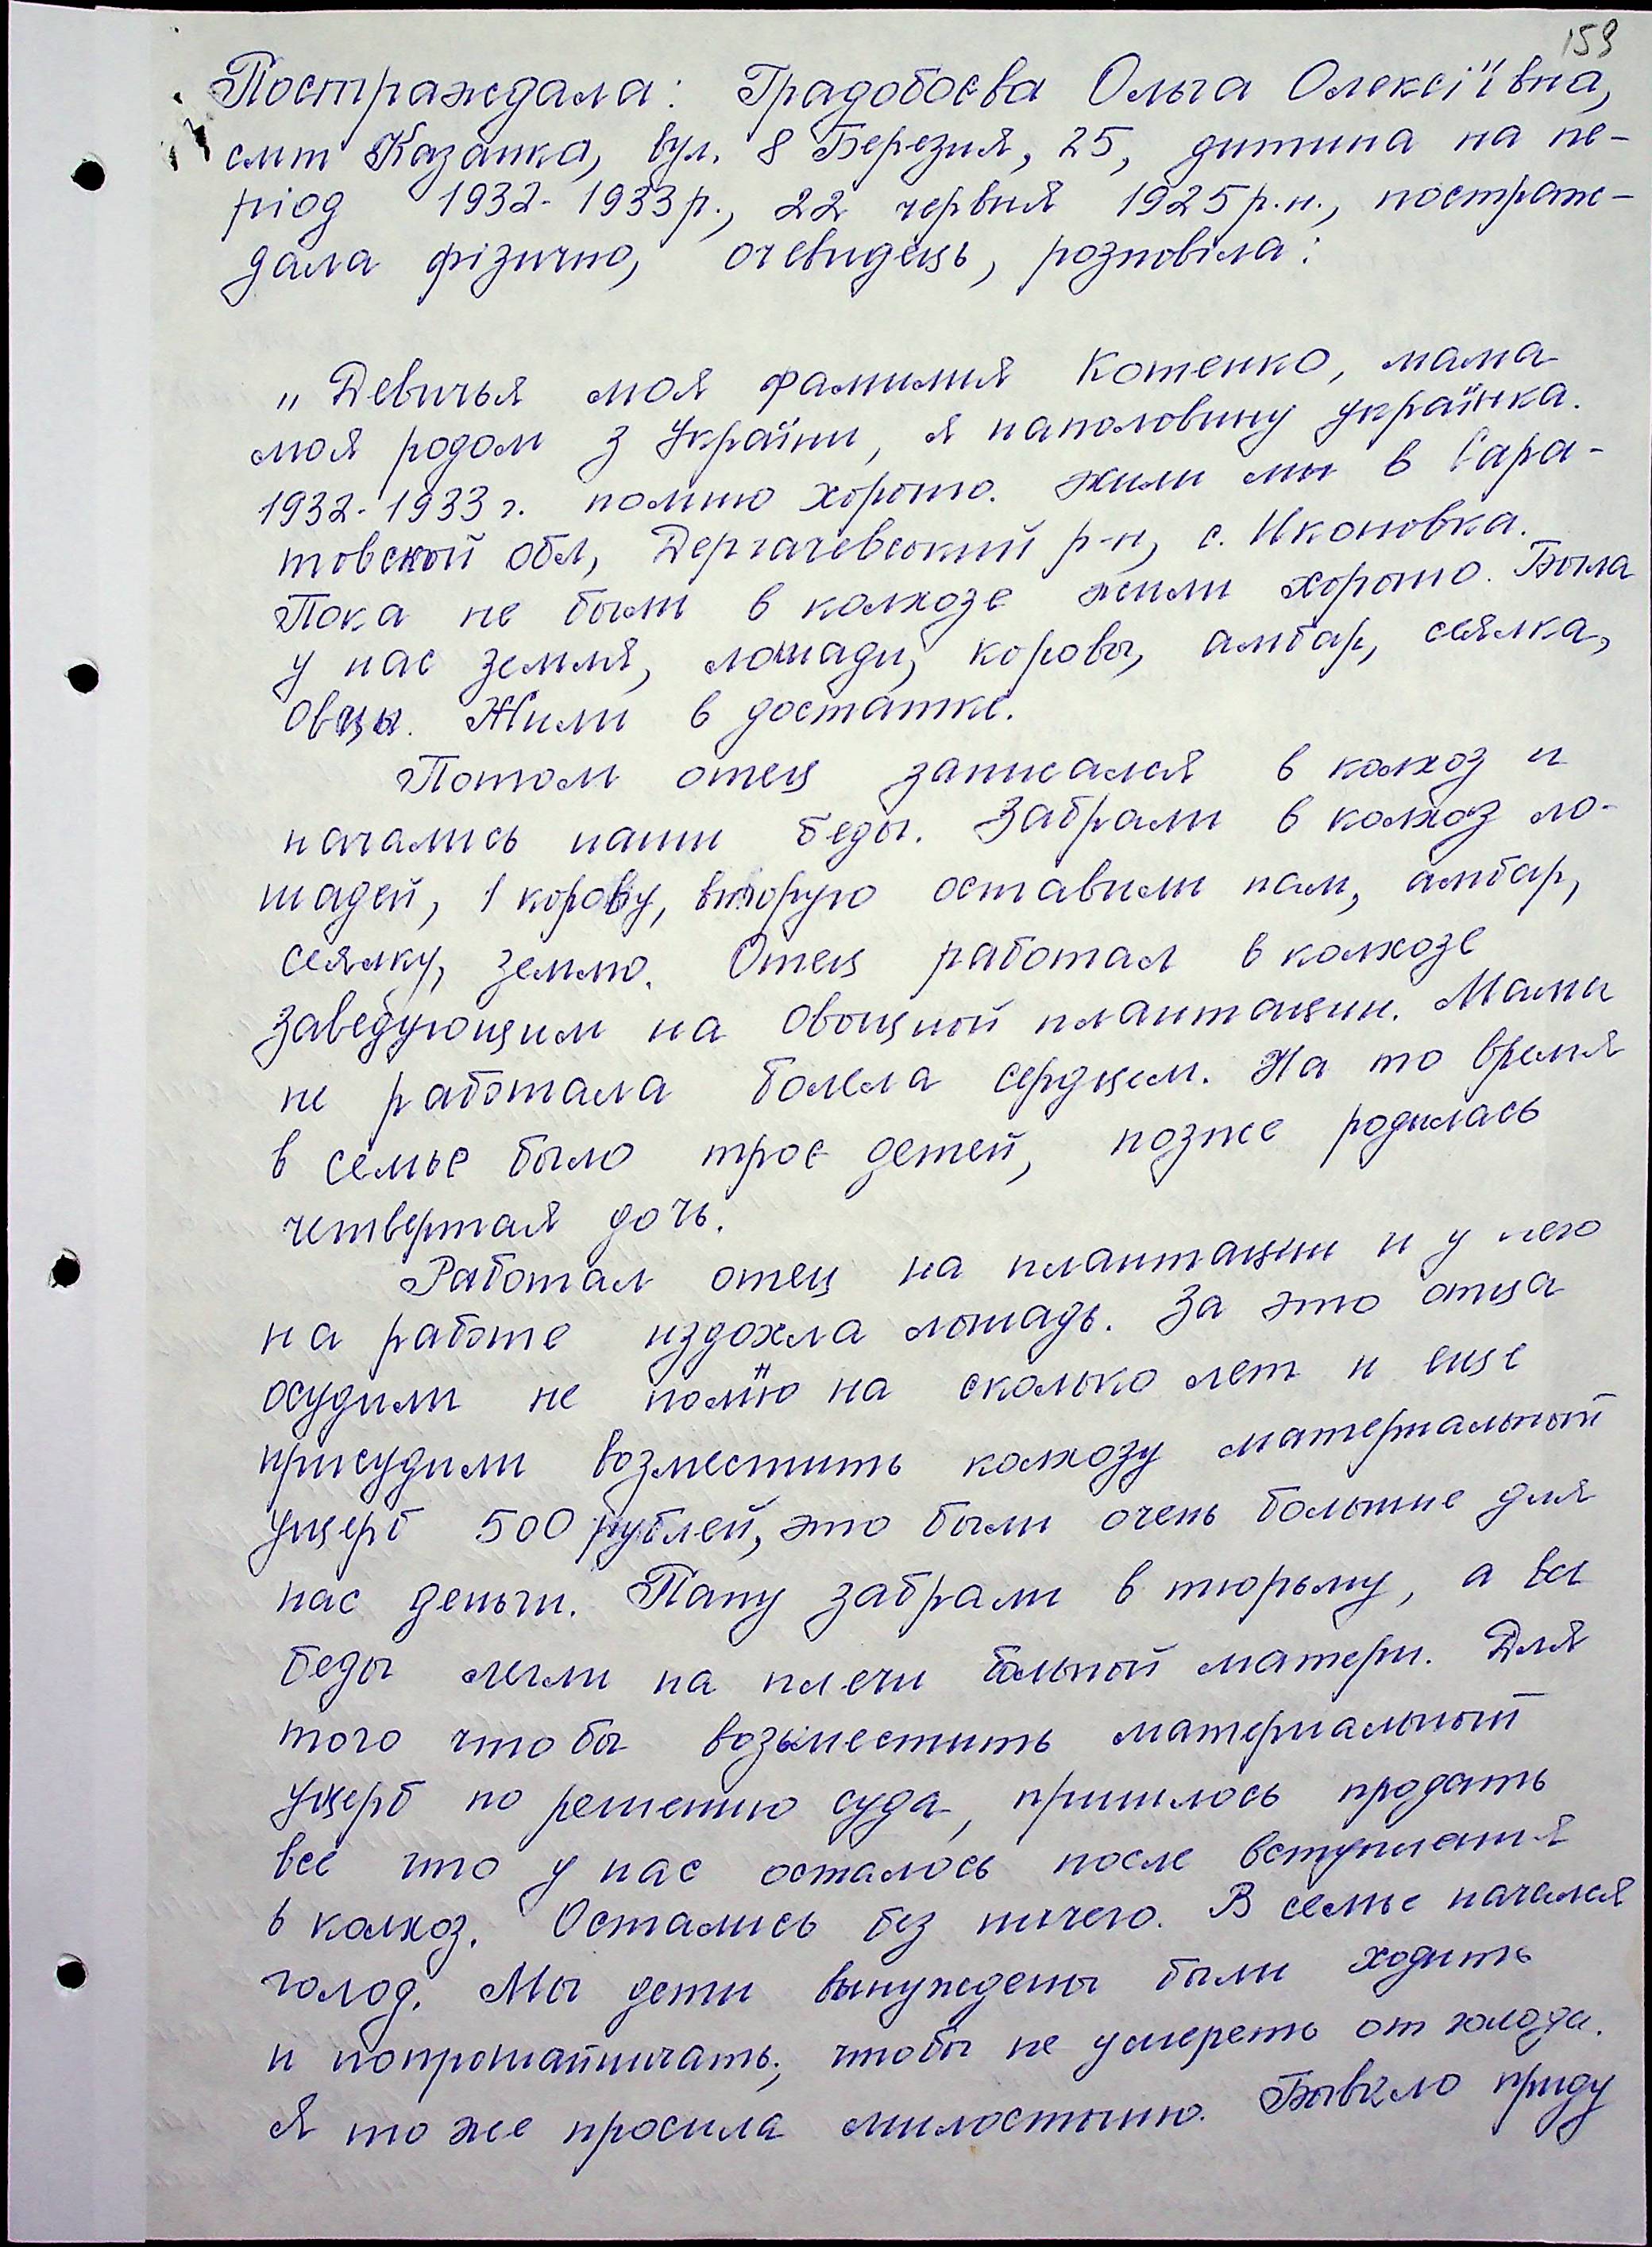 159
Постраждала: Градобоєва Ольга Олексіївна,
смт Казанка, вул. 8 Березня, 25, дитина на пе-
ріод 1932-1933р., 22 червня 1925р.н., постраж-
дала фізично, очевидець, розповіла:
„Девичья моя фамилия Котенко, мама
моя родом з України, я наполовину українка.
1932-1933 г. помню хорошо. Жили мы в Сара-
товской обл, Дергачевський р-н, с. Иконовка.
Пока не были в колхозе жили хорошо. Была
у нас земля, лошади, коровы, амбар, сеялка,
овцы. Жили в достатке.
Потом отец записался в колхоз и
начались наши беды. Забрали в колхоз ло-
шадей, 1 корову, вторую оставили нам, амбар,
сеялку, землю. Отец работал в колхозе
заведующим на овощной плантации. Мама
не работала болела сердцем. На то время
в семье было троє детей, позже родилась
четвертая дочь.
Работал отец на плантации и у него
на работе издохла лошадь. За это отца
осудили не помню на сколько лет и еще
присудили возместить колхозу материальный
ущерб 500 рублей, это были очень большие для
нас деньги. Папу забрали в тюрьму, а все
беды легли на плечи больной матери. Для
того что бы возместить материальный
ущерб по решению суда, пришлось продать
всё что у нас осталось после вступления
в колхоз. Остались без ничего. В семье начался
голод. Мы дети вынуждены были ходить
и попрошайничать, чтобы не умереть от голода.
Я то же просила милостыню. Бывало приду